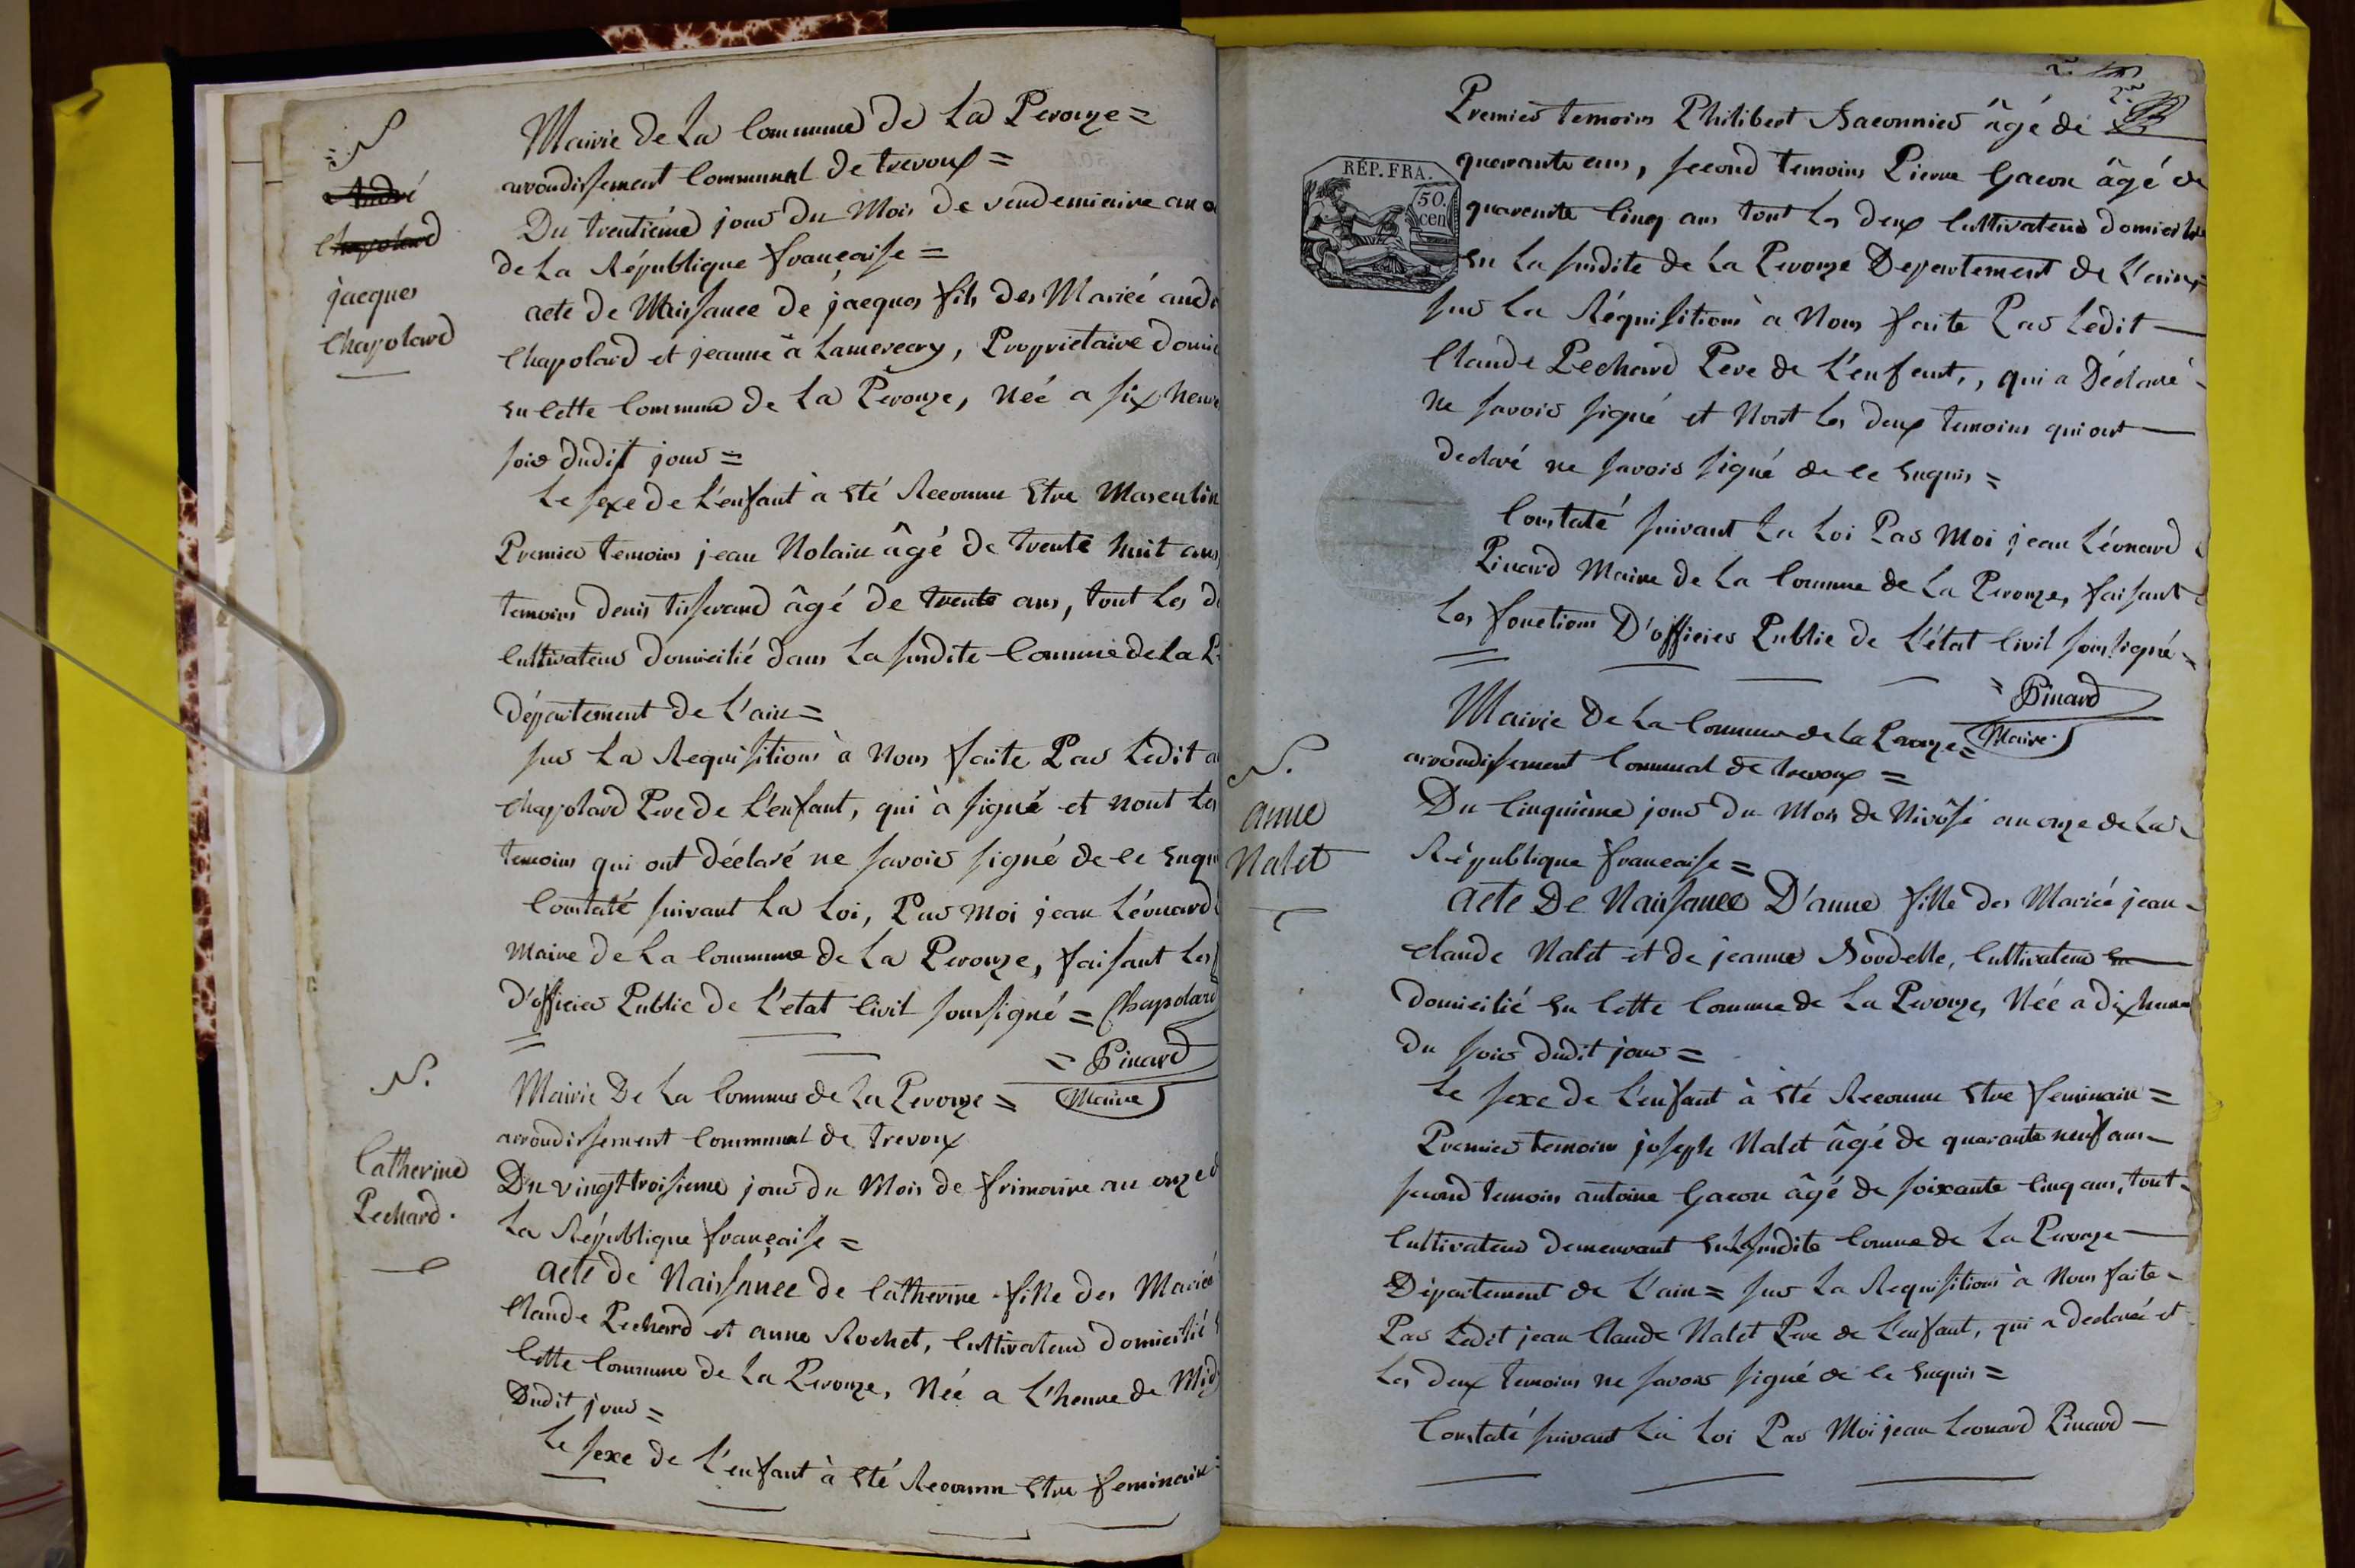 N
André
Chapolard
jacques
Chapolard
Mairie de La Commune de La Perouze =
arrondissement Communal de trevoux =
Du trentième jour du Mois de vendemiaire an
de La République française =
acte de Naissance de jacques fils des Mariéé
Chapolard et jeanne à Lamerecry, Proprietaire
en Cette Commune de La Perouze, Néé a six heure
soir dudit jour =
Le sexe de L'enfant à été Reconnu Etre Masculin
Premier temoins jean Nolain âgé de trente huit ans
temoins denis tisserand âgé de trente ans, tout Les
Cultivateur domicilié dans La susdite Commune de La
Département de L'ain =
sur La Requisitions à Nous faite Par Ledit
Chapolard Pere de L'enfant, qui à signé et nont Les
temoins qui ont déclaré ne savoir signé de ce
Constaté suivant La Loi, Par moi jean Léonard
Maire de La Commune de La Perouze, faisant Les
d'officier Public de L'etat Civil soussigné = Chapolard
= Pinard
Maire
N.
Catherine
Pechard.
Mairie De La Commune de La Perouze =
arrondissement Communal de trevoux
Du vingt-troisieme jour du Mois de frimaire an onze
La République française =
acte de Naissance de Catherine fille des Mariéé
Claude Pechard et anne Rochet, Cultivateur domicilié
Cette Commune de La Perouze, Néé a L'heure de
Dudit jour =
Le sexe de L'enfant à été Reconnu Etre feminain
Premier temoins Philibert Saconnier âgé de
RÉP. FRA.
50.
cen
quarante ans, second temoins Pierre Gacon âgé de
quarente Cinq ans tout Les deux Cultivateur
En La susdite de La Perouze Departement de L'ain,
sur La Réquisitions à Nous faite Par Ledit
Claude Pechard Pere de L'enfant,, qui a Déclaré
Ne savoir signé et Nont Les deux temoins qui ont
declaré ne savoir signé de ce Enquis =
Constaté suivant La Loi Par Moi jean Léonard
Pinard Maire de La Commune de La Perouze, faisant
Les fonctions D'officier Public de L'état Civil soussigné =
= Pinard
Maire
N.
anne
Nalet
Mairie De La Commune de La Perouze =
arrondissement Communal de trevoux =
Du Cinquième jour du Mois de Nivôse an onze de La
République française =
acte De Naissance D'anne fille des Mariéé jean
claude Nalet et de jeanne Sordelle, Cultivateur
domicilié En Cette Commune de La Perouze, Néé a dix heure
du soir dudit jour =
Le sexe de L'enfant à été Reconnu Etre feminain =
Premier temoins joseph Nalet âgé de quarante neuf ans
second temoins antoine Gacon âgé de soixante Cinq ans, tout
Cultivateur demeurant En La susdite Comune de La Perouze
Département de L'ain = sur La Requisitions à Nous faite
Par Ledit jean Claude Nalet Pere de L'enfant, qui a declaré et
Les deux temoins ne savoir signé de ce Enquis =
Constaté suivant La Loi Par Moi jean Leonard Pinard